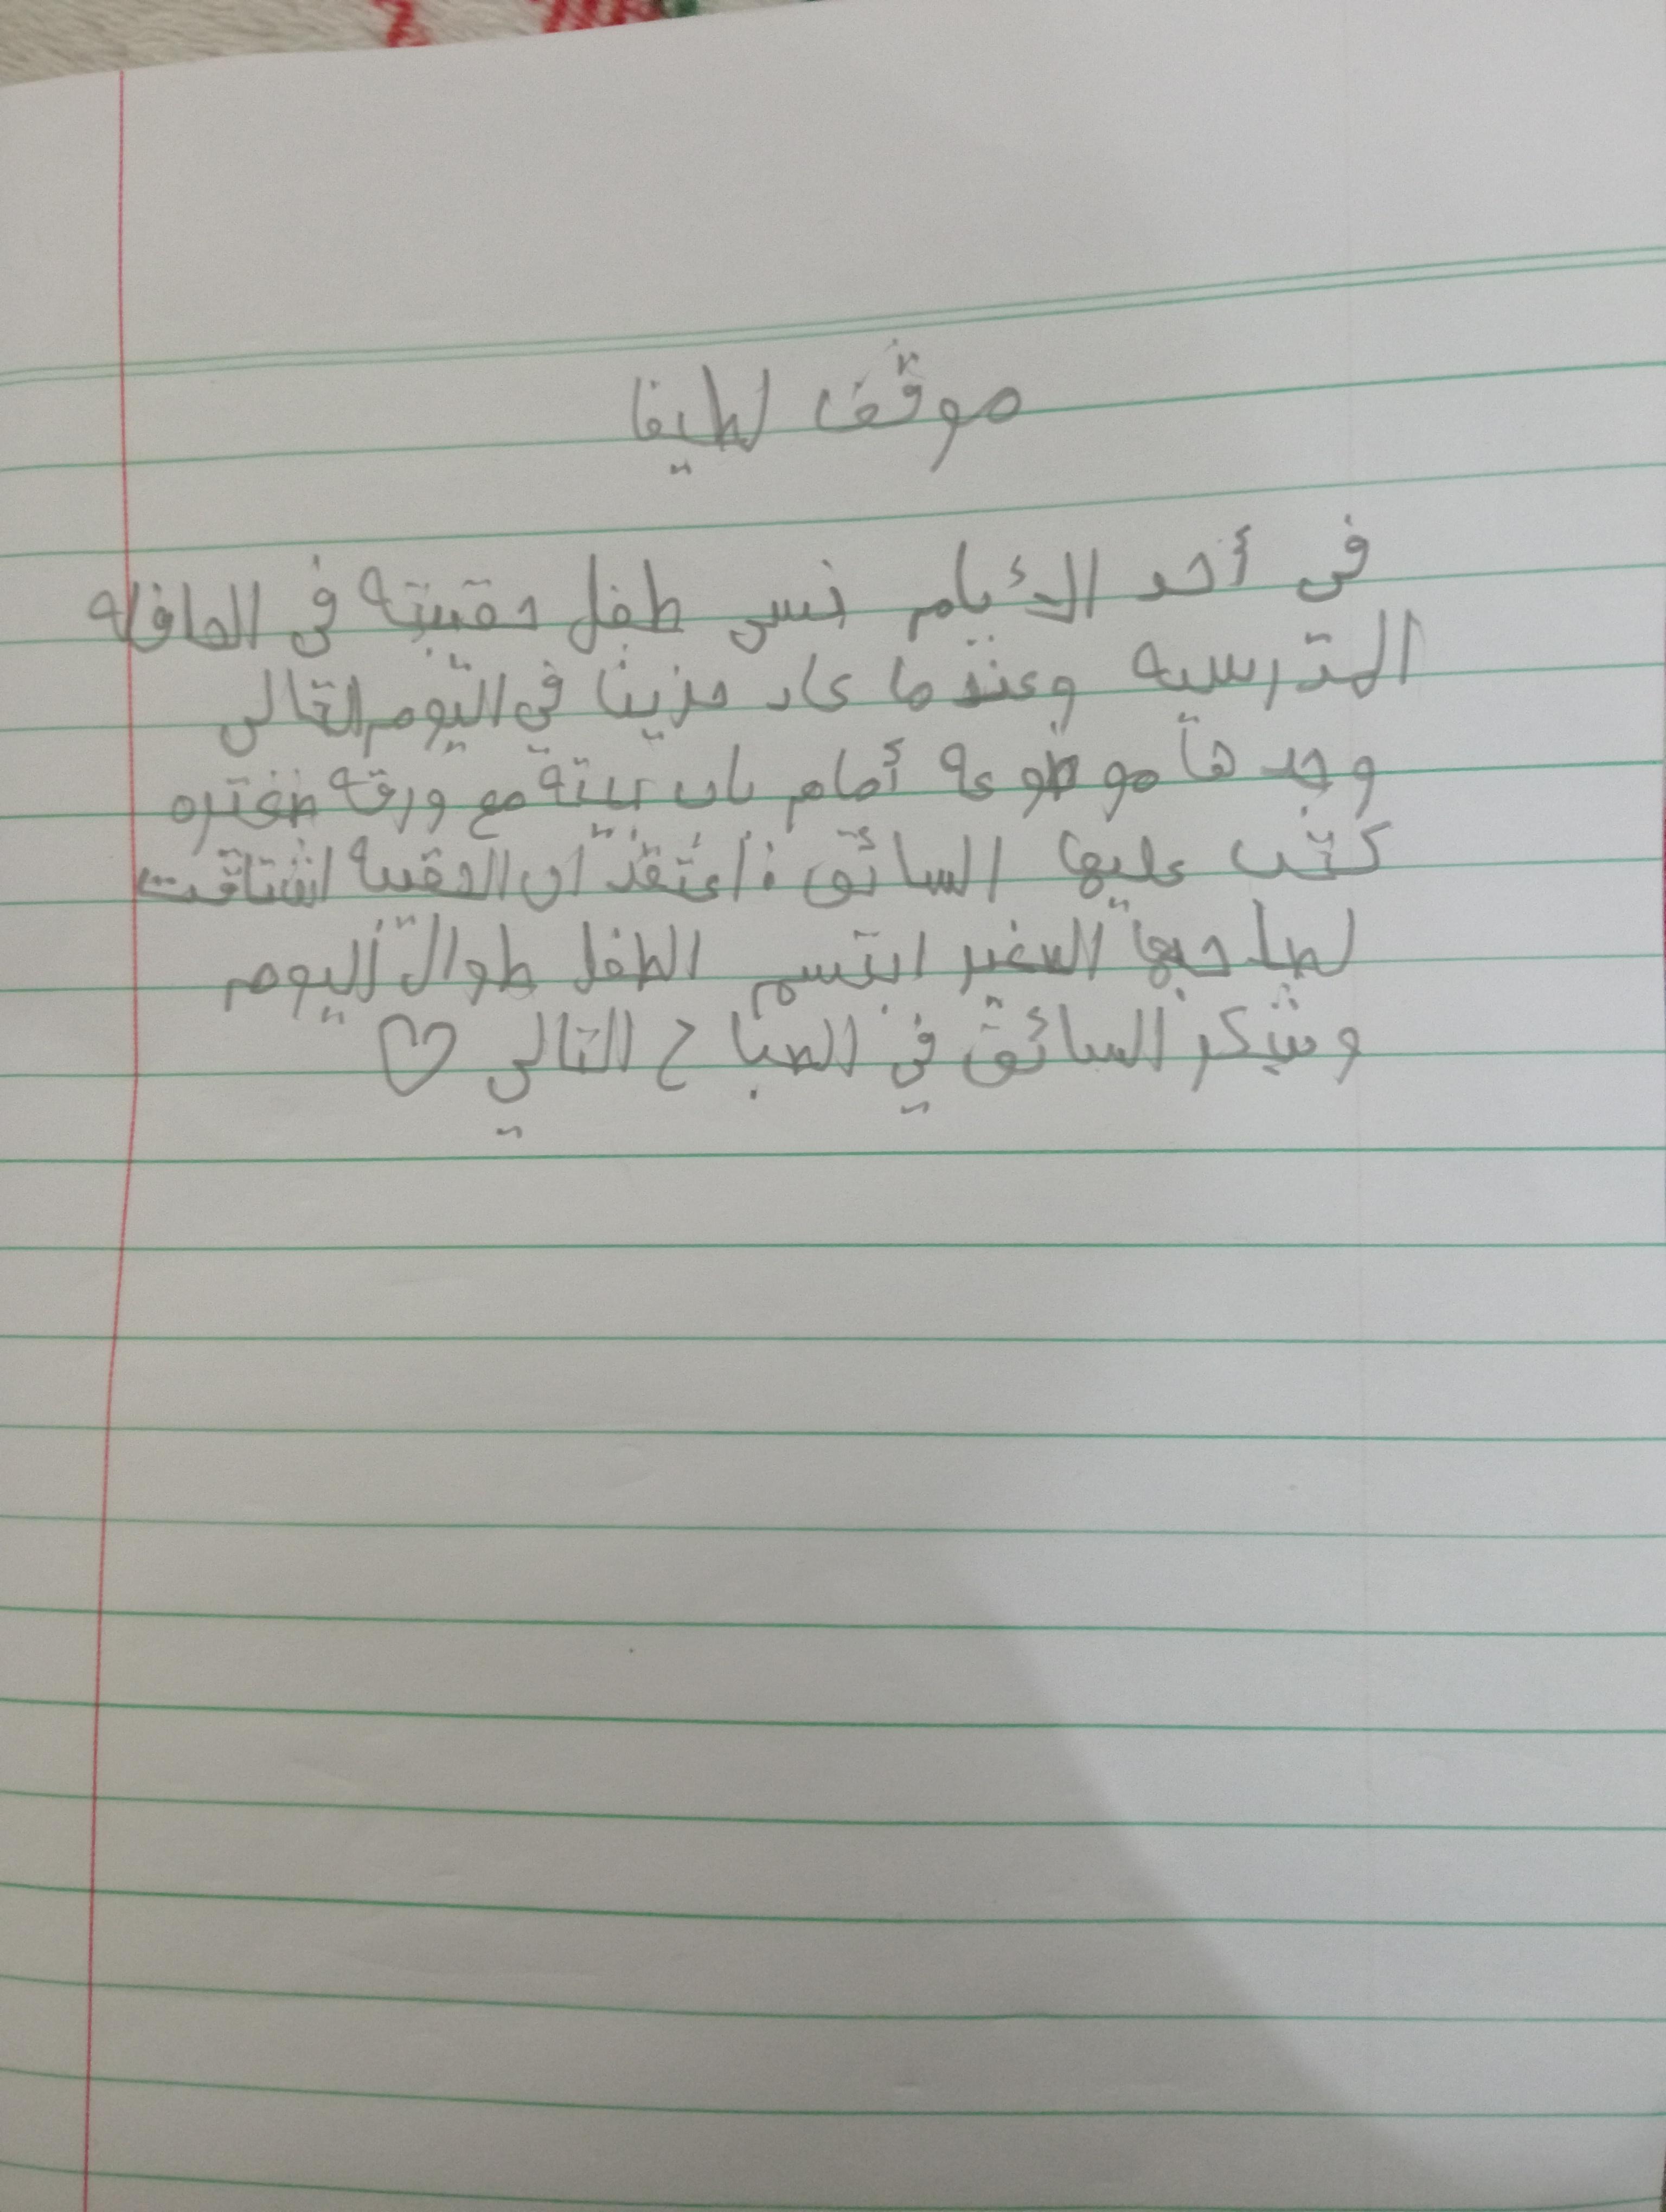 موقف لطيفا
في أحد الأيام نسى طفل حقيبته في الحافله
المدرسيه وعندما عاد حزينا في اليوم التالى
وجدها موضوعة أمام باب بيته مع ورقة صغيره
كتب عليها السائق : اعتقد ان الحقيبة اشتاقت
لصاحبها الصغير ابتسم الطفل طوال اليوم
وشكر السائق في الصباح التالي ♡